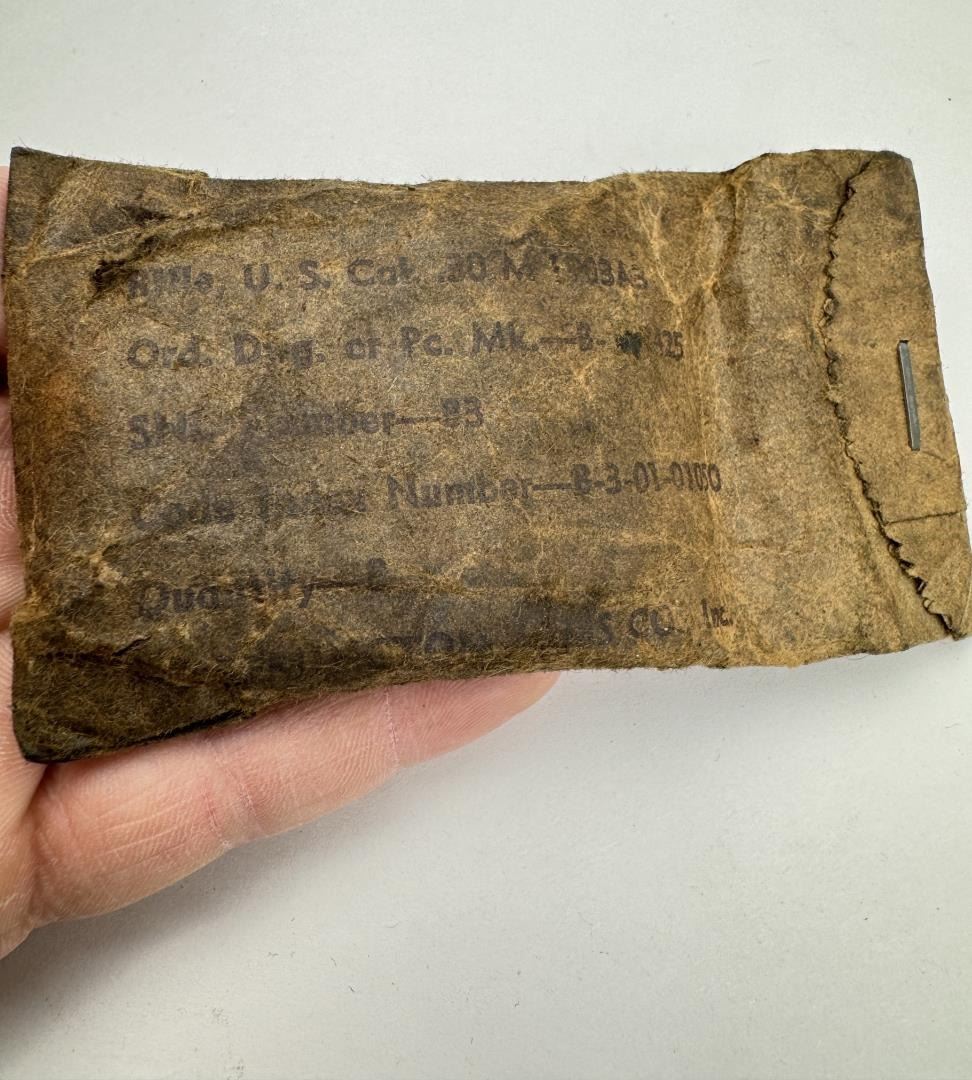 Rifle, U. S. Cal. .30 M 1903A3
Ord. Dwg. or Pc. Mk.—B- 25
SNL Number—B3
Code Index Number—B-3-01-01050
Quantity—
CO., Inc.